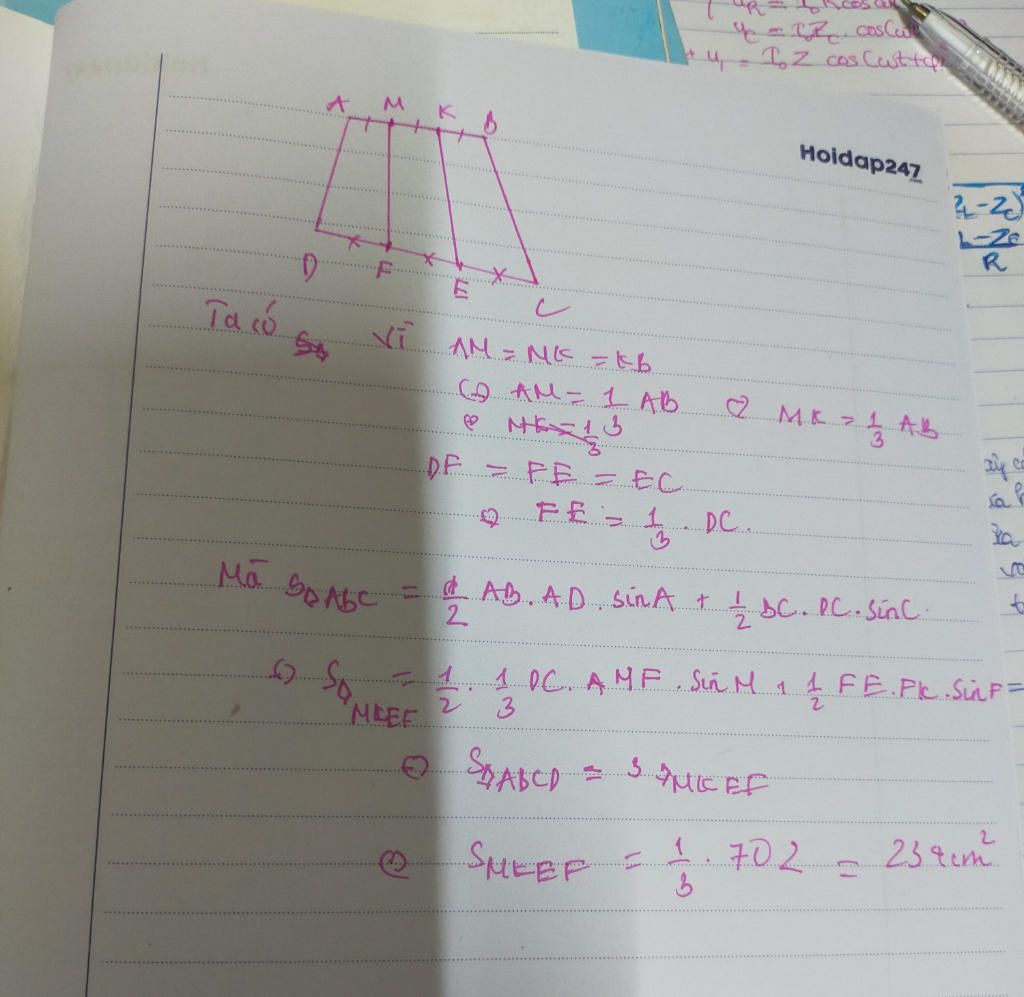 UR = I₀R cosωt
UC = I₀ZC . cos(ωt
+ U₁ = I₀ Z cos(ωt+φ
A M K B
Hoidap247
D F E C
ZL-ZC)²
L-ZC
R
Ta có Vì AM = MK = KB
(=) AM = 1 AB (=) MK = 1/3 AB
DF = FE = EC
(=) FE = 1/3 . DC.
Mà SDABC = 1/2 AB . AD . sin A + 1/2 BC . DC . sin C.
(=) SDMKEF = 1/2 . 1/3 DC . AMF . Sin M + 1/2 FE . FK . sin F =
(=) SDABCD = 3 SMKEF
(=) SMKEF = 1/3 . 702 = 234cm²